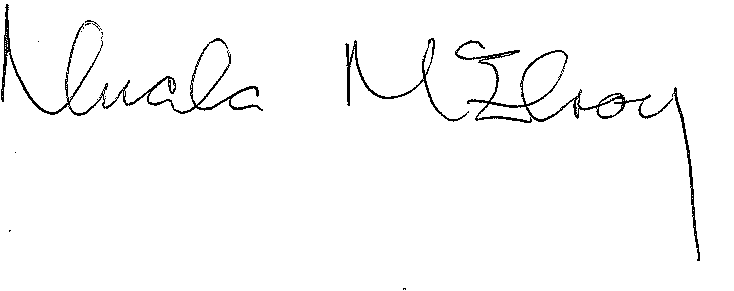 Nuala McElroy